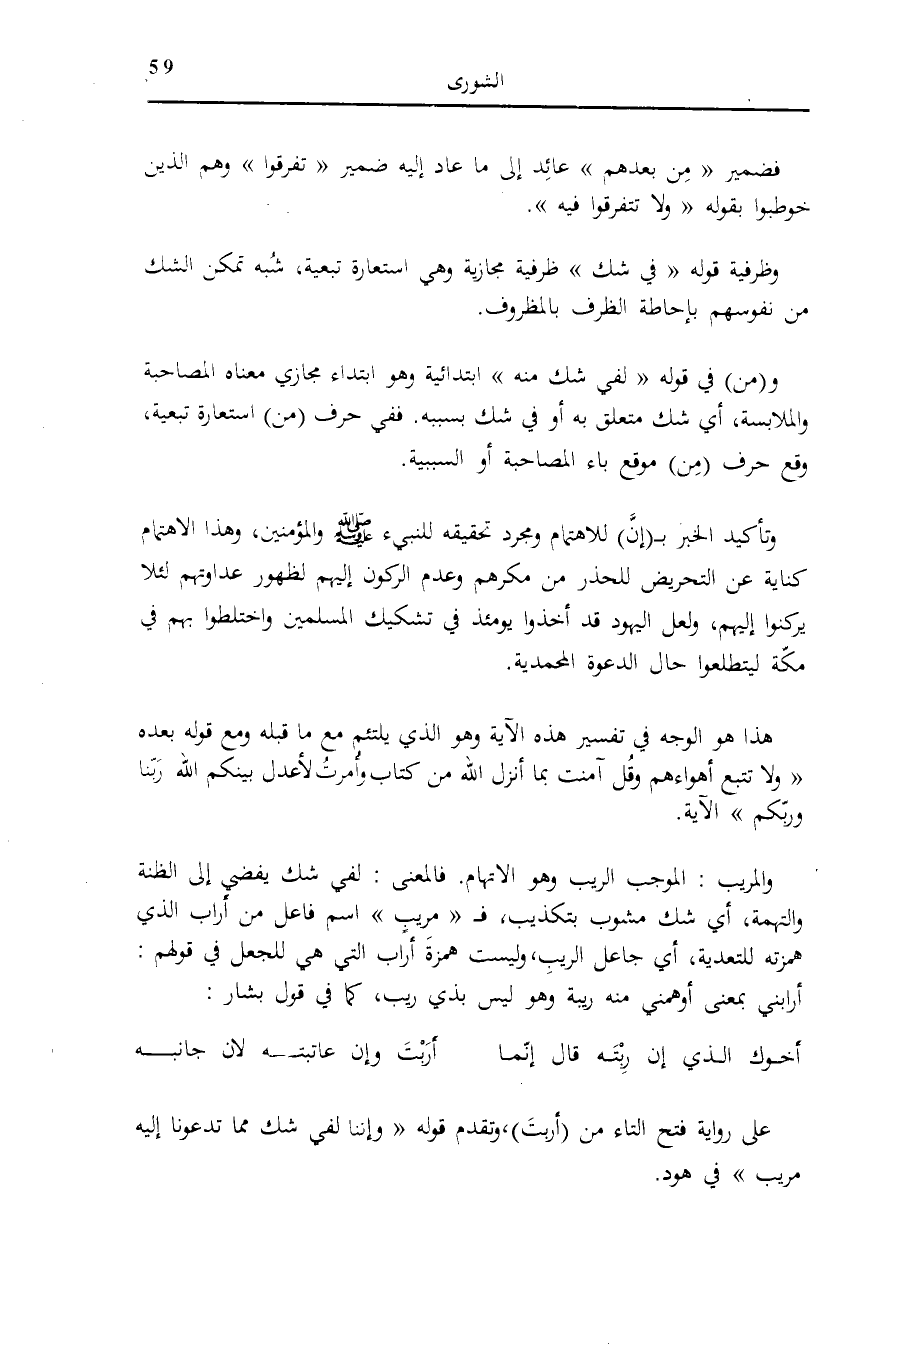 59
الشورى
فضمير « مِن بعدهم » عائِد إلى ما عاد إليه ضمير « تفرقوا » وهم الذين
خوطبوا بقوله « ولا تتفرقوا فيه ».
وظرفية قوله « في شك » ظرفية مجازية وهي استعارة تبعية، شُبه تمكن الشك
من نفوسهم بإحاطة الظرف بالمظروف.
و(من) في قوله « لفي شك منه » ابتدائية وهو ابتداء مجازي معناه المصاحبة
والملابسة، أي شك متعلق به أو في شك بسببه. ففي حرف (من) استعارة تبعية،
وقع حرف (مِن) موقع باء المصاحبة أو السببية.
وتأكيد الخبر بـ(إنَّ) للاهتمام ومجرد تحقيقه للنبيء ﷺ والمؤمنين، وهذا الاهتمام
كناية عن التحريض للحذر من مكرهم وعدم الركون إليهم لظهور عداوتهم لئلا
يركنوا إليهم، ولعل اليهود قد أخذوا يومئذ في تشكيك المسلمين واختلطوا بهم في
مكّة ليتطلعوا حال الدعوة المحمدية.
هذا هو الوجه في تفسير هذه الآية وهو الذي يلتئم مع ما قبله ومع قوله بعده
« ولا تتبع أهواءهم وقُل آمنت بما أنزل الله من كتاب وأُمرتُ لأعدل بينكم الله رَبّنا
وربّكم » الآية.
والمريب : الموجب الريب وهو الاتهام. فالمعنى : لفي شك يفضي إلى الظنة
والتهمة، أي شك مشوب بتكذيب، فـ « مريبٍ » اسم فاعل من أَراب الذي
همزته للتعدية، أي جاعل الريبِ، وليست همزةَ أراب التي هي للجعل في قولهم :
أرابني بمعنى أوهمني منه ريبة وهو ليس بذي ريب، كما في قول بشار :
أخوك الذي إن رِبْتَه قال إنّما أَرَبْتَ وإن عاتبتـه لان جانبـه
على رواية فتح التاء من (أربتَ)، وتقدم قوله « وإننا لفي شك مما تدعونا إليه
مريب » في هود.